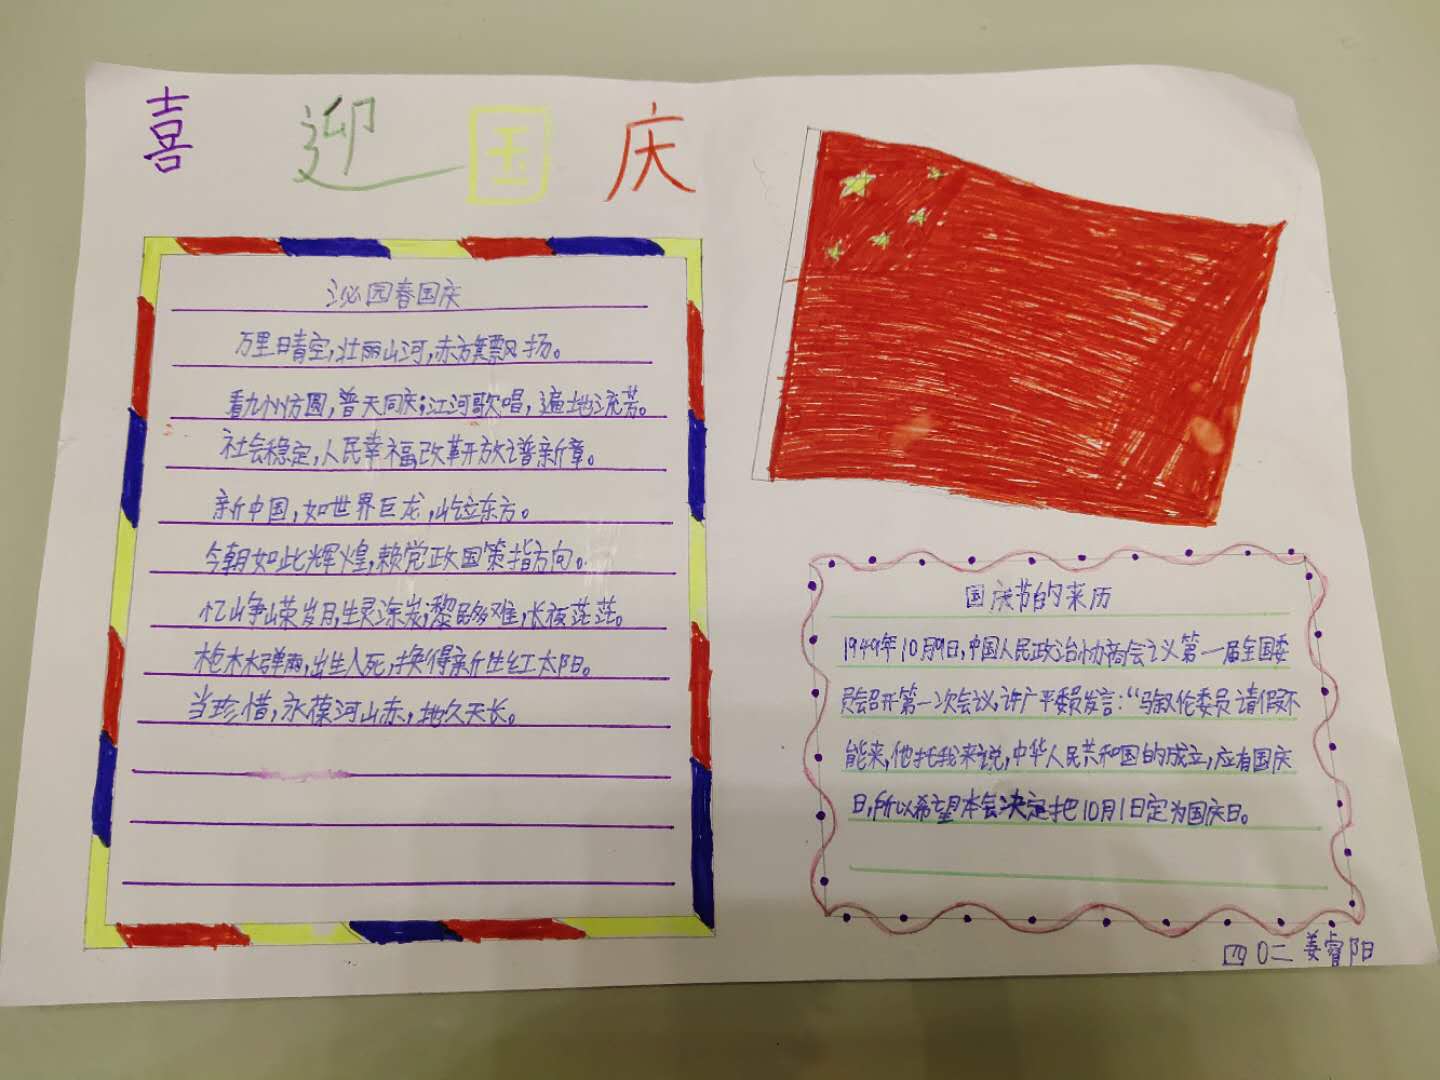 喜迎国庆
沁园春国庆
万里晴空,壮丽山河,赤旗飘扬。
看九州方圆,普天同庆;江河歌唱,遍地流芳。
社会稳定,人民幸福,改革开放谱新章。
新中国,如世界巨龙,屹立东方。
今朝如此辉煌,赖党政国策指方向。
忆峥嵘岁月,生灵涂炭;黎民多难,长夜茫茫。
枪林弹雨,出生入死,换得新生红太阳。
当珍惜,永葆河山赤,地久天长。
国庆节的来历
1949年10月9日,中国人民政治协商会议第一届全国委
员会召开第一次会议,许广平委员发言:“马叙伦委员请假不
能来,他托我来说,中华人民共和国的成立,应有国庆
日,所以希望本会决定把10月1日定为国庆日。
四〇二 姜睿阳